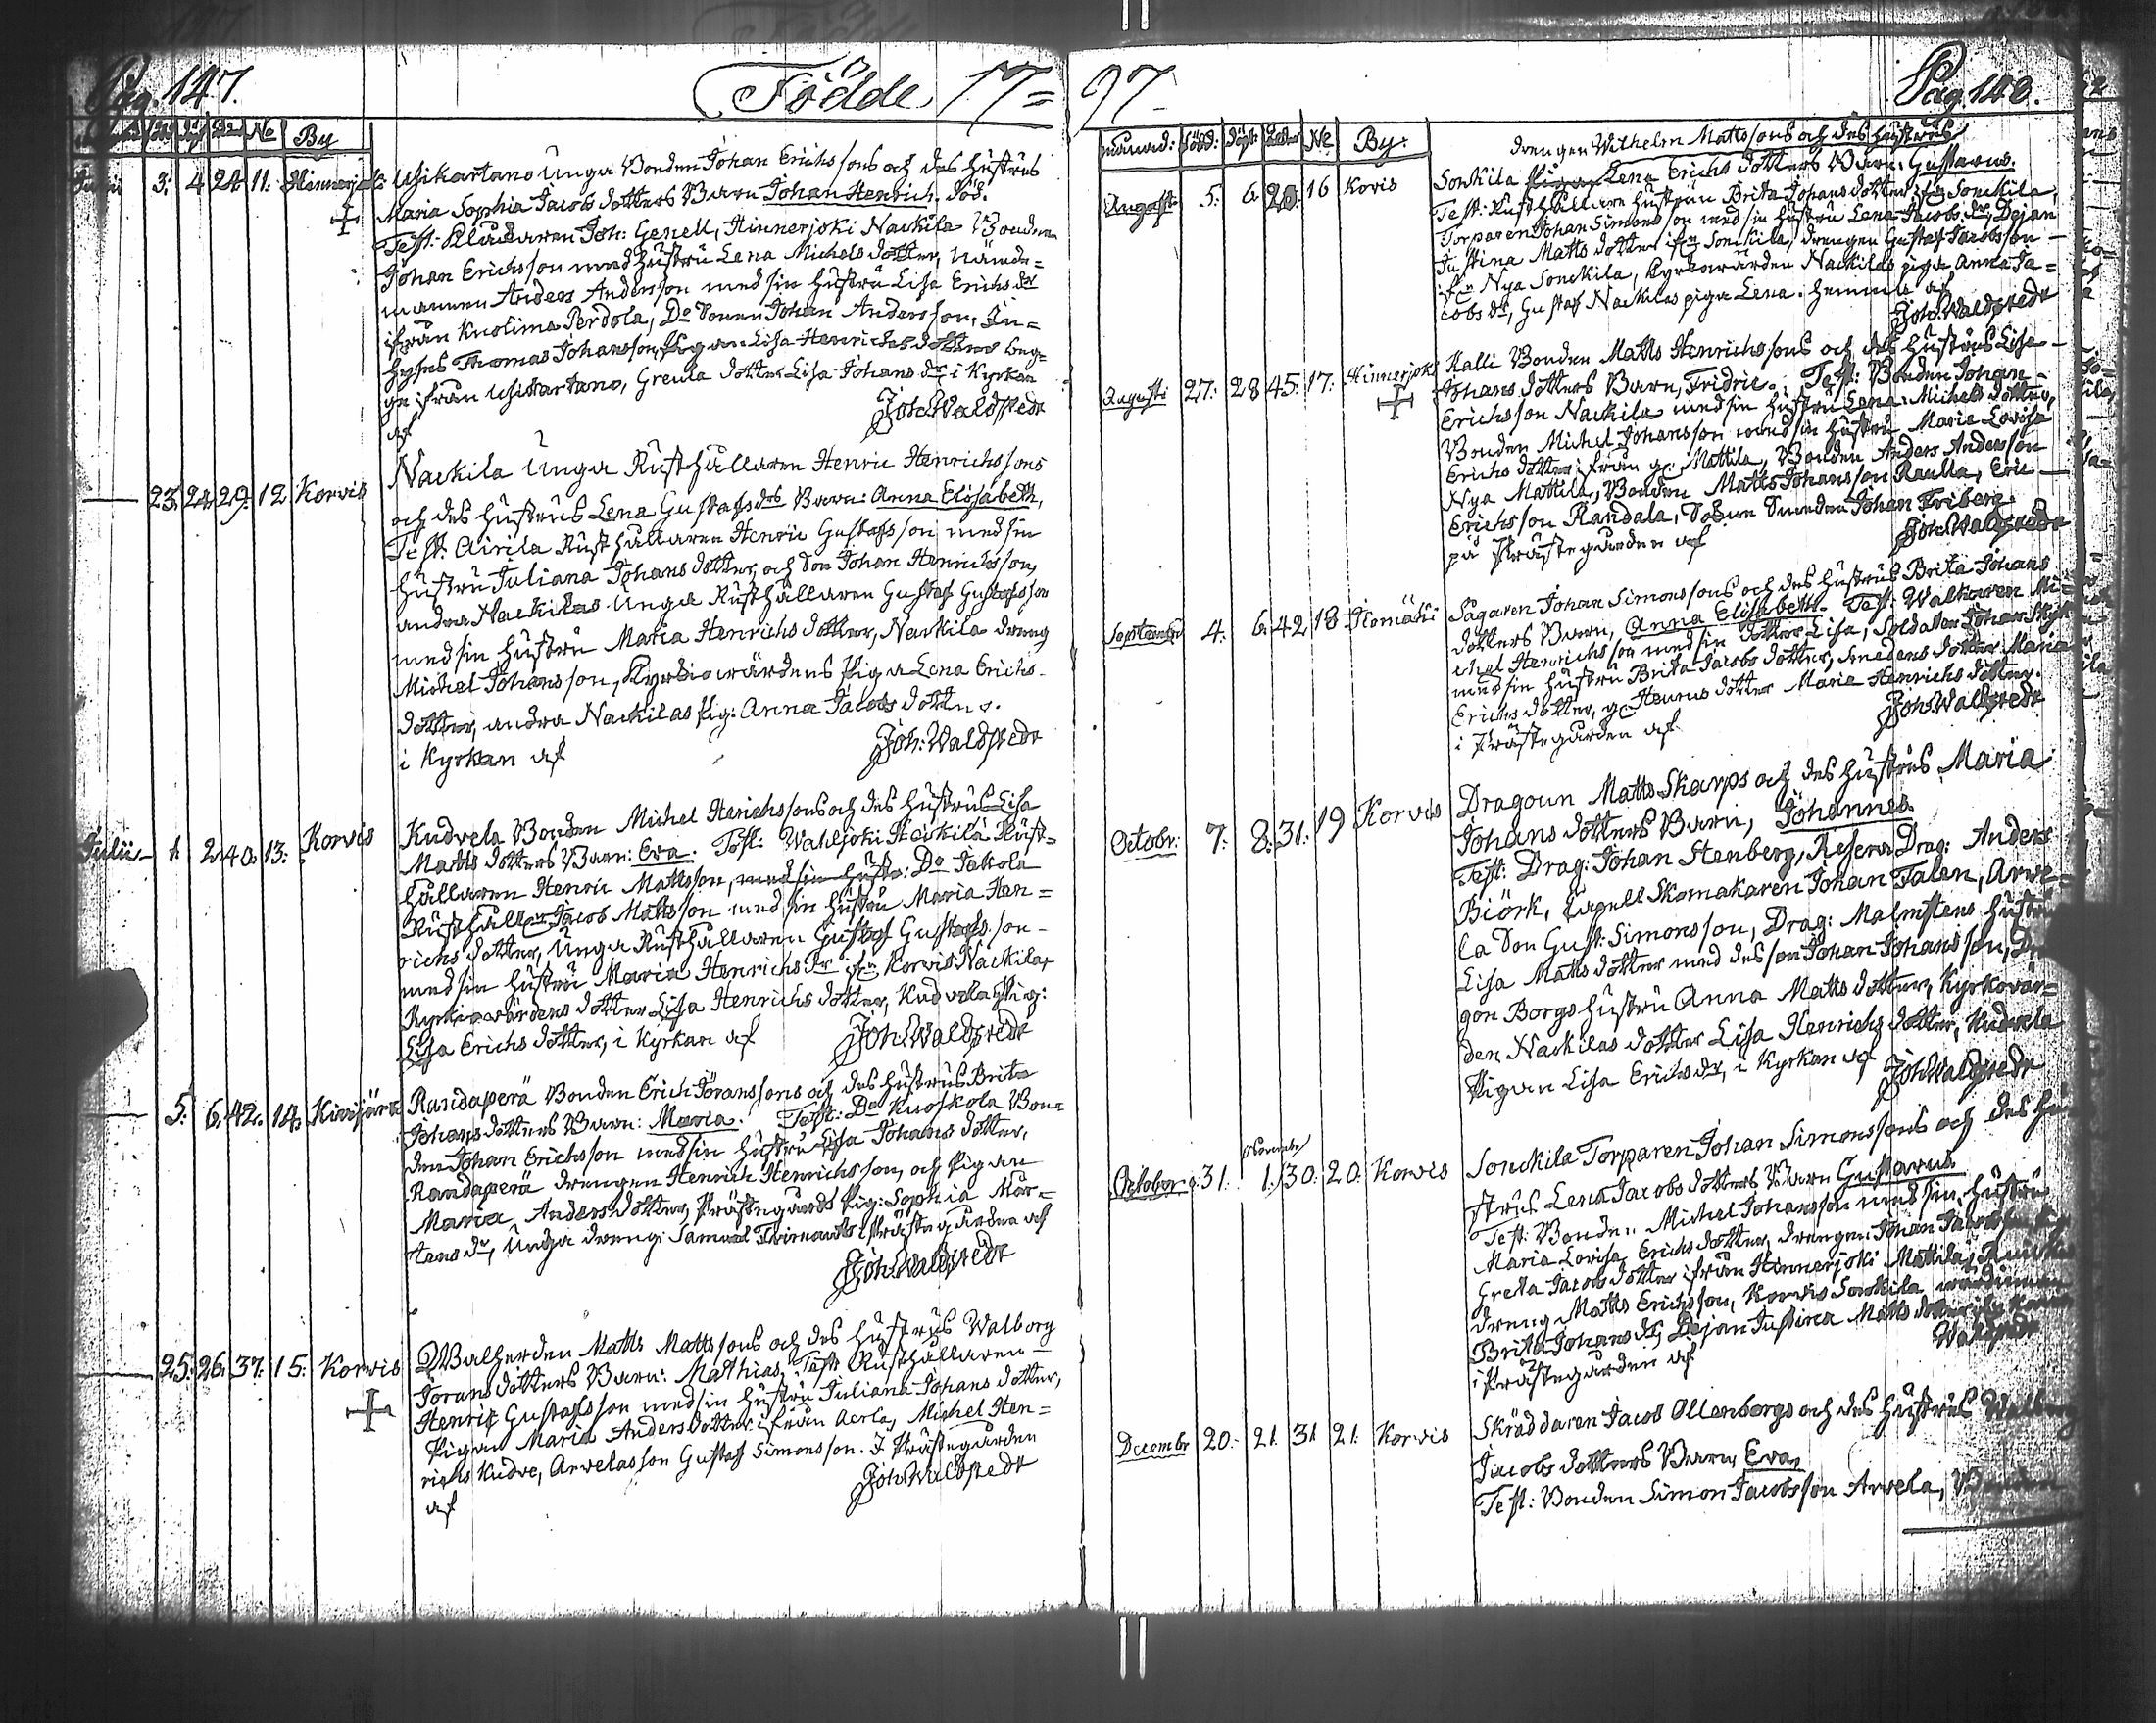 Pag. 147.
Födde 17=
By
3. 4. 24. 11. Hinnerjoki Usikartano Unga Bonden Johan Erichssons och des Hustrus
Maria Sophia Jacobsdotters Barn Johan Henrich. död.
Test: Klåckaren Joh: Genell, Hinnerjoki Nackila Bonden
Johan Erichsson med hustru Lena Michelsdotter, Nämde=
mannen Anders Andersson med sin hustru Lisa Erichs dr
ifrån Kuolima Perdola, Do Sonen Johan Andersson, In=
hyses Thomas Johansson, Pigan Lisa Henrichsdotter beg=
ge ifrån Usikartano, Greula dotter Lisa Johans dr i Kyrkan
af Joh: Waldstedt
23. 24. 29. 12 Korvis Nackila Unga Rusthållaren Henric Henrichssons
och des Hustrus Lena Gustafs drs Barn: Anna Elisabeth,
Test. Airila Rusthållaren Henric Gustafsson med sin
hustru Juliana Johansdotter och Son Johan Henrichsson,
andra Nackilas Unga Rusthållaren Gustaf Gustafsson
med sin hustru Maria Henrichsdotter, Nackila dreng
Michel Johansson, Kyrkiowärdens Piga Lena Erichs-
dotter, andra Nackilas Pig: Anna Jacobsdotter.
i Kyrkan af Joh: Waldstedt
Julii 1. 2. 40. 13. Korvis Kudvela Bonden Michel Henrichssons och des hustrus Lisa
Mattsdotters Barn: Eva. Test: Wahljoki Heickilä Rust=
hållaren Henric Mattsson, med sin hustr: Do Jakola
Rusthållr Jacob Mattsson med sin hustru Maria Hen=
richsdotter, Unga Rusthållaren Gustaf Gustafsson
med sin hustru Maria Henrichs dr ifrn Korvis Nackila,
Kyrkiowärdens dotter Lisa Henrichsdotter, Kudvela Pig:
Lisa Erichsdotter, i Kyrkan af Joh: Waldstedt
5. 6. 42. 14. Kivijärvi Randaperä Bonden Erich Göranssons och des hustrus Brita
Johansdotters Barn: Maria. Test: Do Kuoskola Bon=
den Johan Erichsson med sin hustru Lisa Johansdotter,
Randaperä drengen Henrich Henrichsson och Pigan
Maria Andersdotter, Prästegårds Pig: Sophia Mår=
tens dr, Unga dreng: Samuel i Prästegården af
Joh: Waldstedt
25. 26. 37. 15: Korvis Walherden Matts Mattssons och des hustrus Walborg
Joransdotters Barn: Mathias. Test: Rusthållaren
Henric Gustafsson med sin hustru Juliana Johansdotter,
Pigan Maria Andersdotter ifrån Aerla, Michel Hen=
richs Kudve, Arvelas son Gustaf Simonsson. I Prästegården
af Joh: Waldstedt
97
Pag. 148.
månad: född: döpt: No By:
drengen Wilhelm Mattssons och des hustrus
August 5. 6. 28. 16 Korvis Sonkila Pigan Lena Erichsdotters Barn: Gustavus.
Test: Rusthållare hustrun Brita Johansdotter ifrn Sonckila,
Torparen Johan Simonsson med sin hustru Lena Jacobs dr, Dejan
Justina Mattsdotter ifrn Sonckila, drengen Gustaf Jacobsson
ifrn Nya Sonckila, Kyrkiowärden Nackilas piga Anna Ja=
cobs dr, Gustaf Nackilas piga Lena. hemma af
Joh: Waldstedt
Augusti 27. 28 45. 17. Hinnerjoki Kalli Bonden Matts Henrichssons och des hustrus Lisa
Johansdotters Barn, Fridric. Test: Bonden Johan
Erichsson Nackila med sin hustru Lena Michelsdotter,
Bonden Michel Johansson med sin hustru Maria Lovisa
Erichsdotter ifrån g: Mattila, Bonden Anders Andersson
Nya Mattila, Bonden Matts Johansson Raulla, Eric
Erichsson Randala, Smeden Johan Friberg
på Prästegården af Joh: Waldstedt
September 4. 6. 42. 18 Ilomäki Sågaren Johan Simonssons och des hustrus Brita Johans
dotters Barn, Anna Elisabeth. Test: Walkaren Mi=
chel Henrichsson med sin dotter Lisa, Soldaten Johan
med sin hustru Brita Jacobsdotter, Smedens dotter Maria
Erichsdotter, g: Heurus dotter Maria Henrichsdotter.
i Prästegården af Joh: Waldstedt
Octobr: 7. 8. 31. 19 Korvis Dragoun Matts Skarps och des hustrus Maria
Johansdotters Barn, Johannes.
Test: Drag: Johan Stenberg, Reserv Drag: Anders
Biörk, Capell Skomakaren Johan Talen, Arve=
la Son Gust: Simonsson, Drag: Malmstens hustru
Lisa Mattsdotter med des son Johan Johansson, Dra
gon Borgs hustru Anna Mattsdotter, Kyrkovär=
den Nackilas dotter Lisa Henrichsdotter, Kudvela
Pigan Lisa Erichs dr, i Kyrkan af Joh: Waldstedt
October 31. November 1. 30. 20. Korvis Sonckila Torparen Johan Simonssons och des Hu
strus Lena Jacobsdotters Barn Gustavus
Test: Bonden Michel Johansson med sin hustru
Maria Lovisa Erichsdotter, drengen Johan Jacobsson,
Greta Jacobsdotter ifrån Hinnerjoki Mattila,
dreng Matts Erichsson, Korvis Sonkila wärdinnan
Brita Johans dr, Dejan Justina Mattsdotter
i Prästegården af Waldstedt
Decembr 20. 21. 31. 21. Korvis Skräddaren Jacob Ollenbergs och des hustrus Walborg
Jacobsdotters Barn, Eva,
Test: Bonden Simon Jacobsson Arvela, Bonden